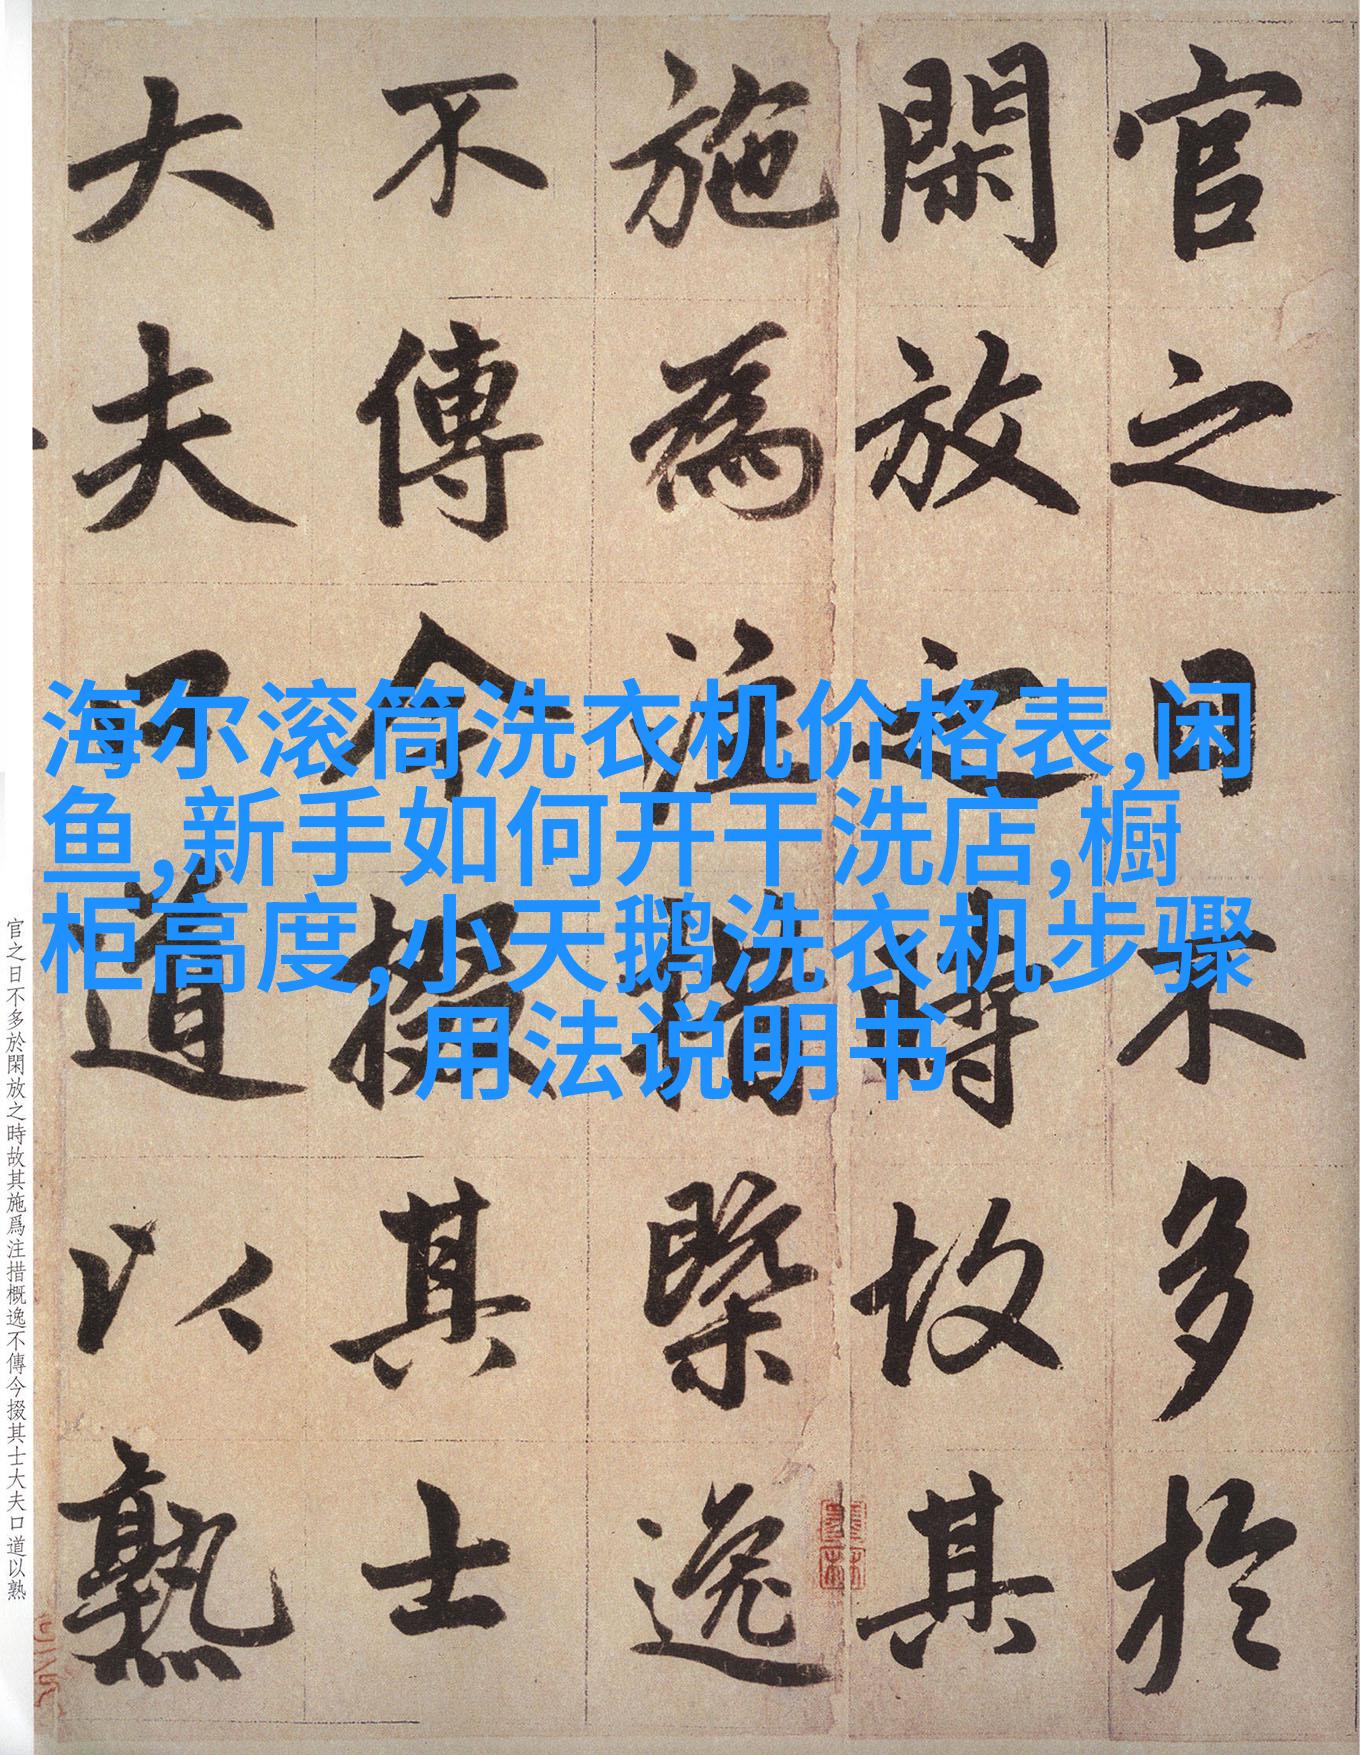 官之日不多於
閑放之時故其
施為注措槩逸
不傳今掇其士
大夫口道以熟
海尔滚筒洗衣机价格表,闲
鱼,新手如何开干洗店,橱
柜高度,小天鹅洗衣机步骤
用法说明书
官之日不多於閑放之時故其施爲注措概逸不傳今掇其士大夫口道以熟